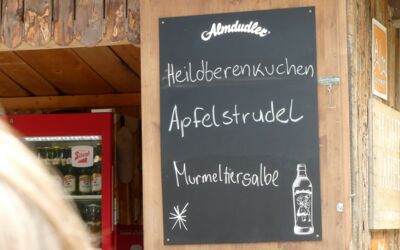 Almdudler
Heildberenkuchen
Apfelstrudel
Murmeltiersalbe